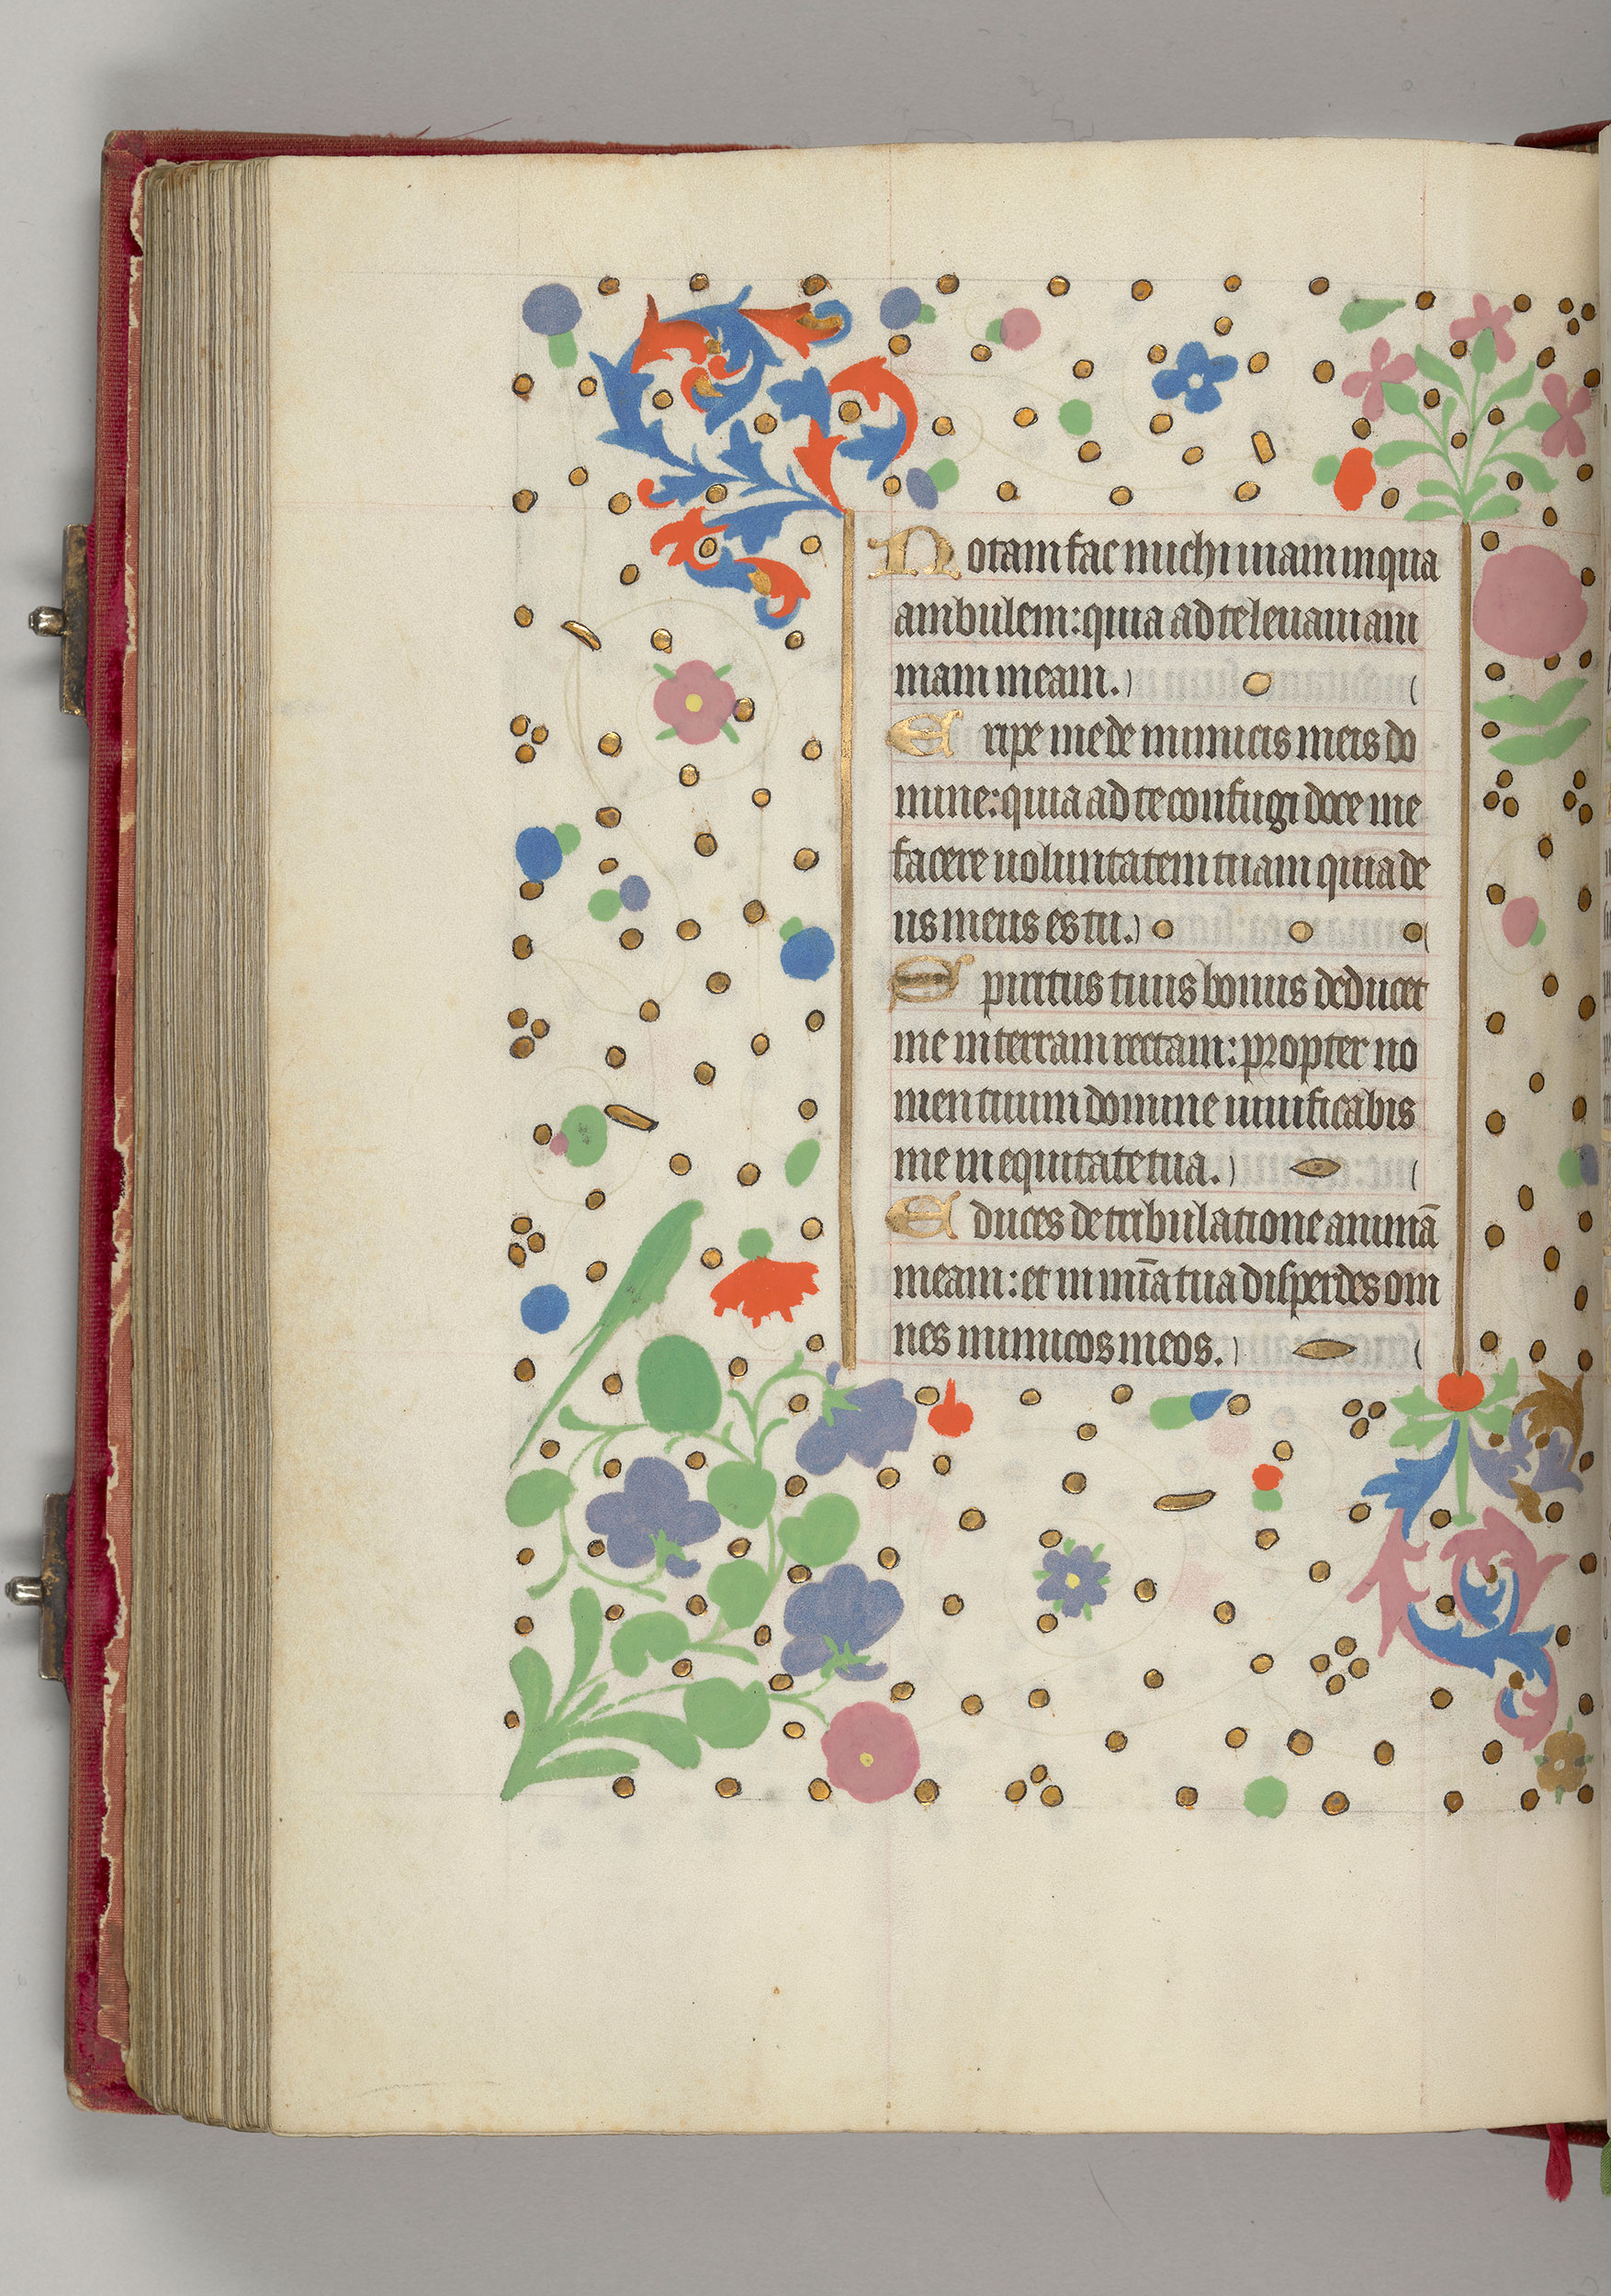 Notam fac michi uiam in qua
ambulem: quia ad te leuaui ani
mam meam.
Eripe me de inimicis meis do
mine: quia ad te confugi doce me
facere uoluntatem tuam quia de
us meus es tu.
Spiritus tuus bonus deducet
me in terram rectam: propter no
men tuum domine uiuificabis
me in equitate tua.
Educes de tribulatione animā
meam: et in mīa tua disperdes om
nes inimicos meos.